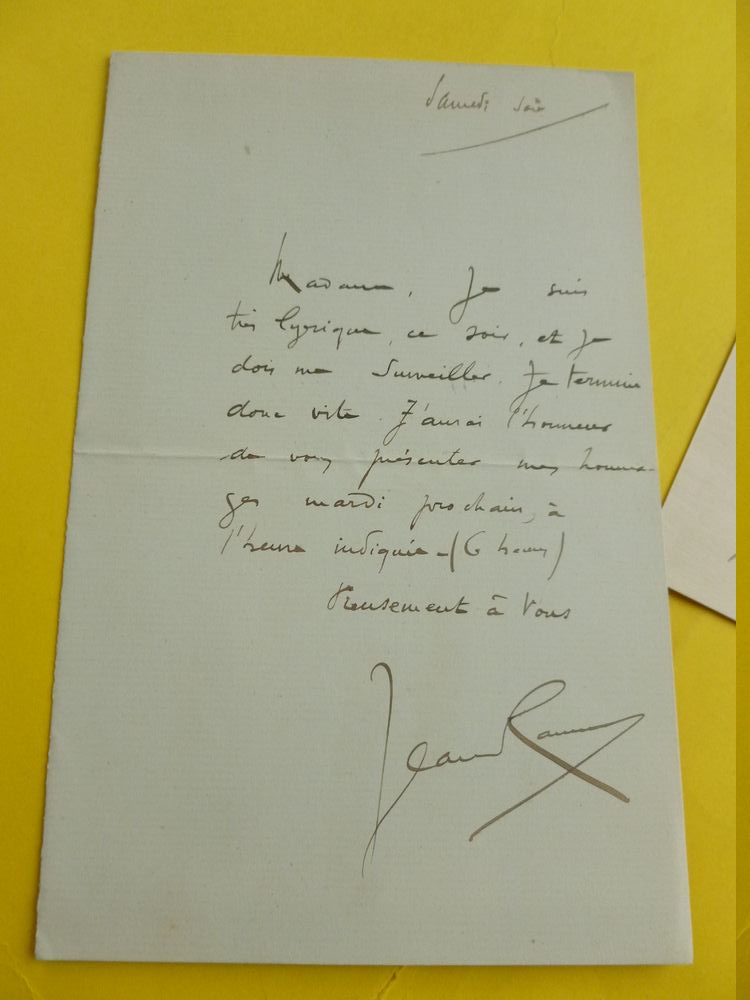 Samedi soir
Madame, Je suis
très lyrique, ce soir, et je
dois me surveiller. Je termine
donc vite. J'aurai l'honneur
de vous présenter mes homma-
ges mardi prochain, à
l'heure indiquée - (6 heures)
à Vous
Jean